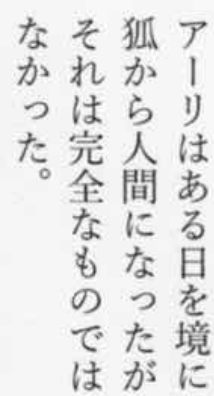 アーリはある日を境に
狐から人間になったが
それは完全なものでは
なかった。